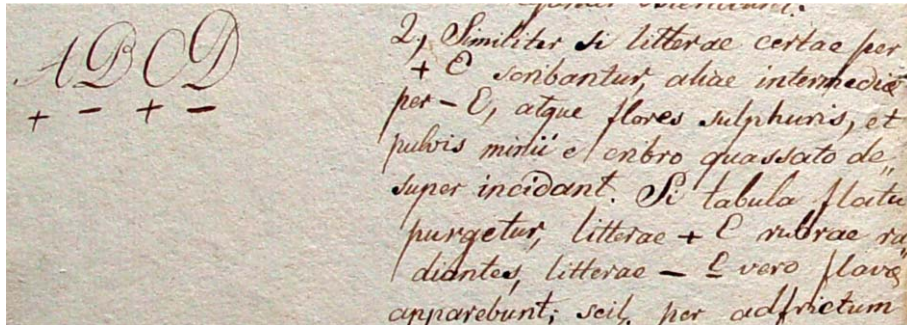 A B C D
+ - + -
2, Similiter si litterae certae per
+ E scribantur, aliae intermediae
per - E, atque flores sulphuris, et
pulvis minii e cribro quassato de„
super incidant. Si tabula flatu
purgetur, litterae + E rubrae ra„
diantes, litterae - E vero flavae
apparebunt; scil. per adfrictum